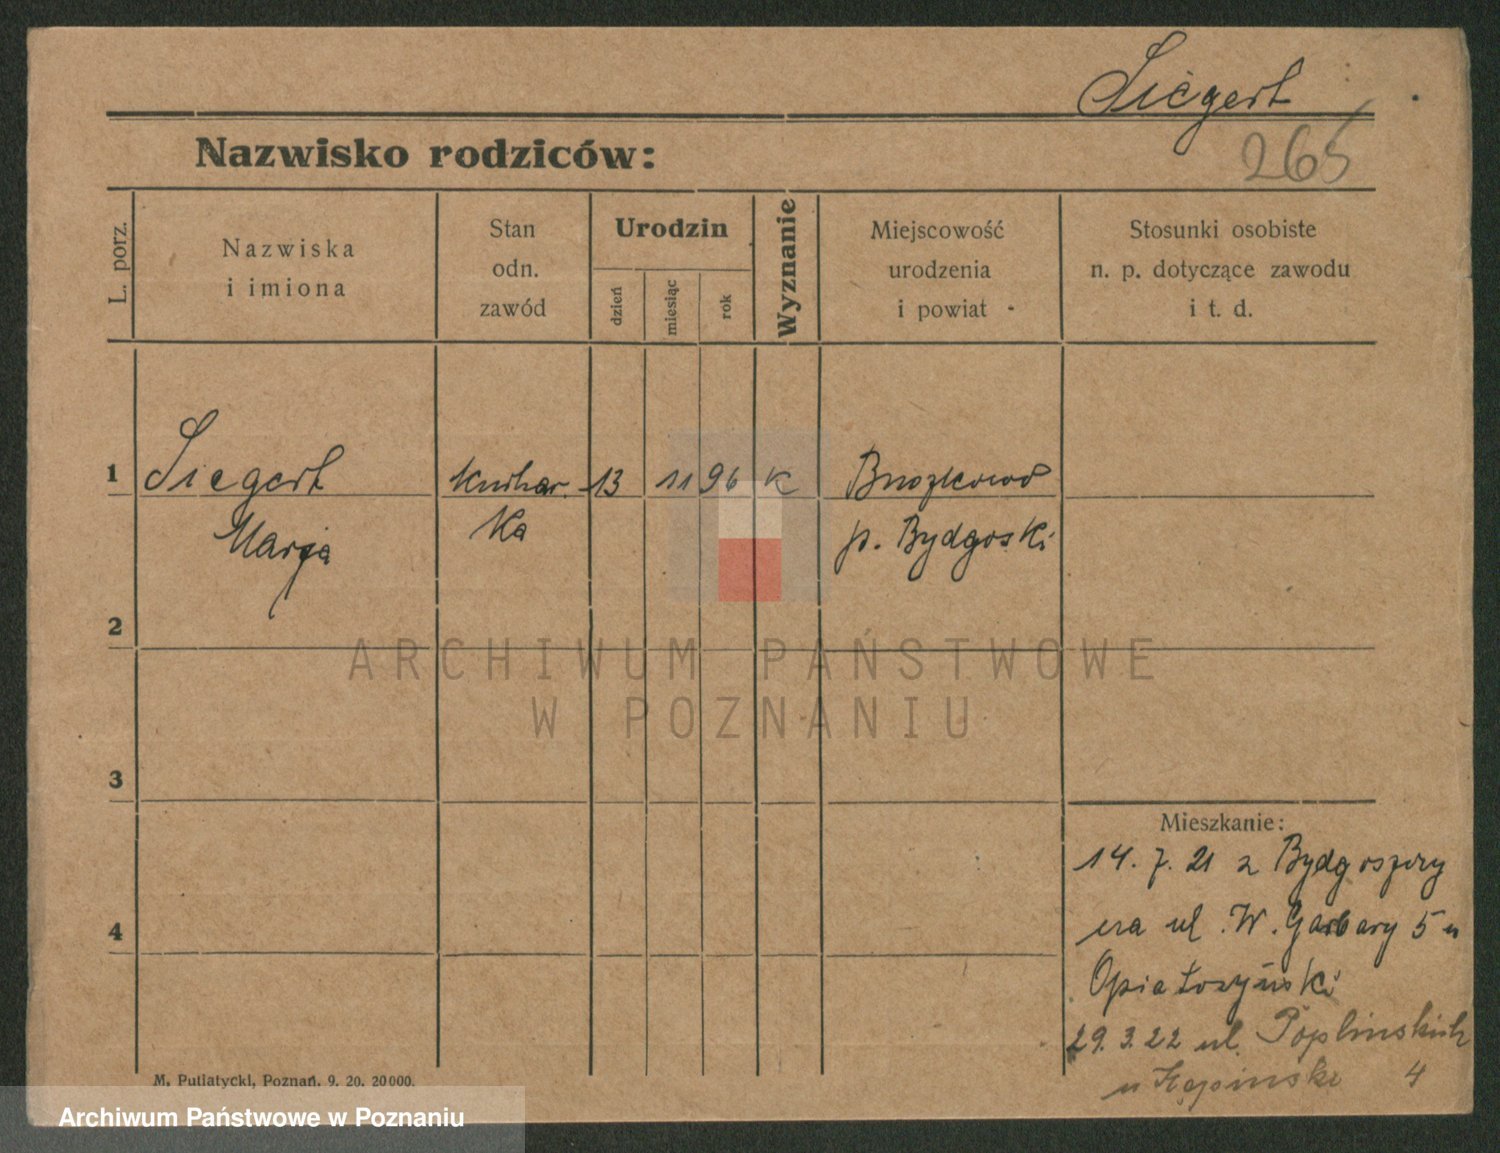 Siegert
Nazwisko rodziców:
265
L. porz.
Nazwiska
i imiona
Stan
odn.
zawód
Urodzin
dzień
miesiąc
rok
Wyznanie
Miejscowość
urodzenia
i powiat
Stosunki osobiste
n. p. dotyczące zawodu
i t. d.
1
Siegert
kuchar.
13
11
96
K
Marja
ka
p. Bydgoski
2
ARCHIWUM PAŃSTWOWE
W POZNANIU
3
Mieszkanie:
14. 7. 21 z Bydgoszczy
4
na ul. W. Garbary 5 u
Opiatoszyński
29. 3. 22 ul. Poplinskich
u 4
M. Putiatycki, Poznań. 9. 20. 20000.
Archiwum Państwowe w Poznaniu